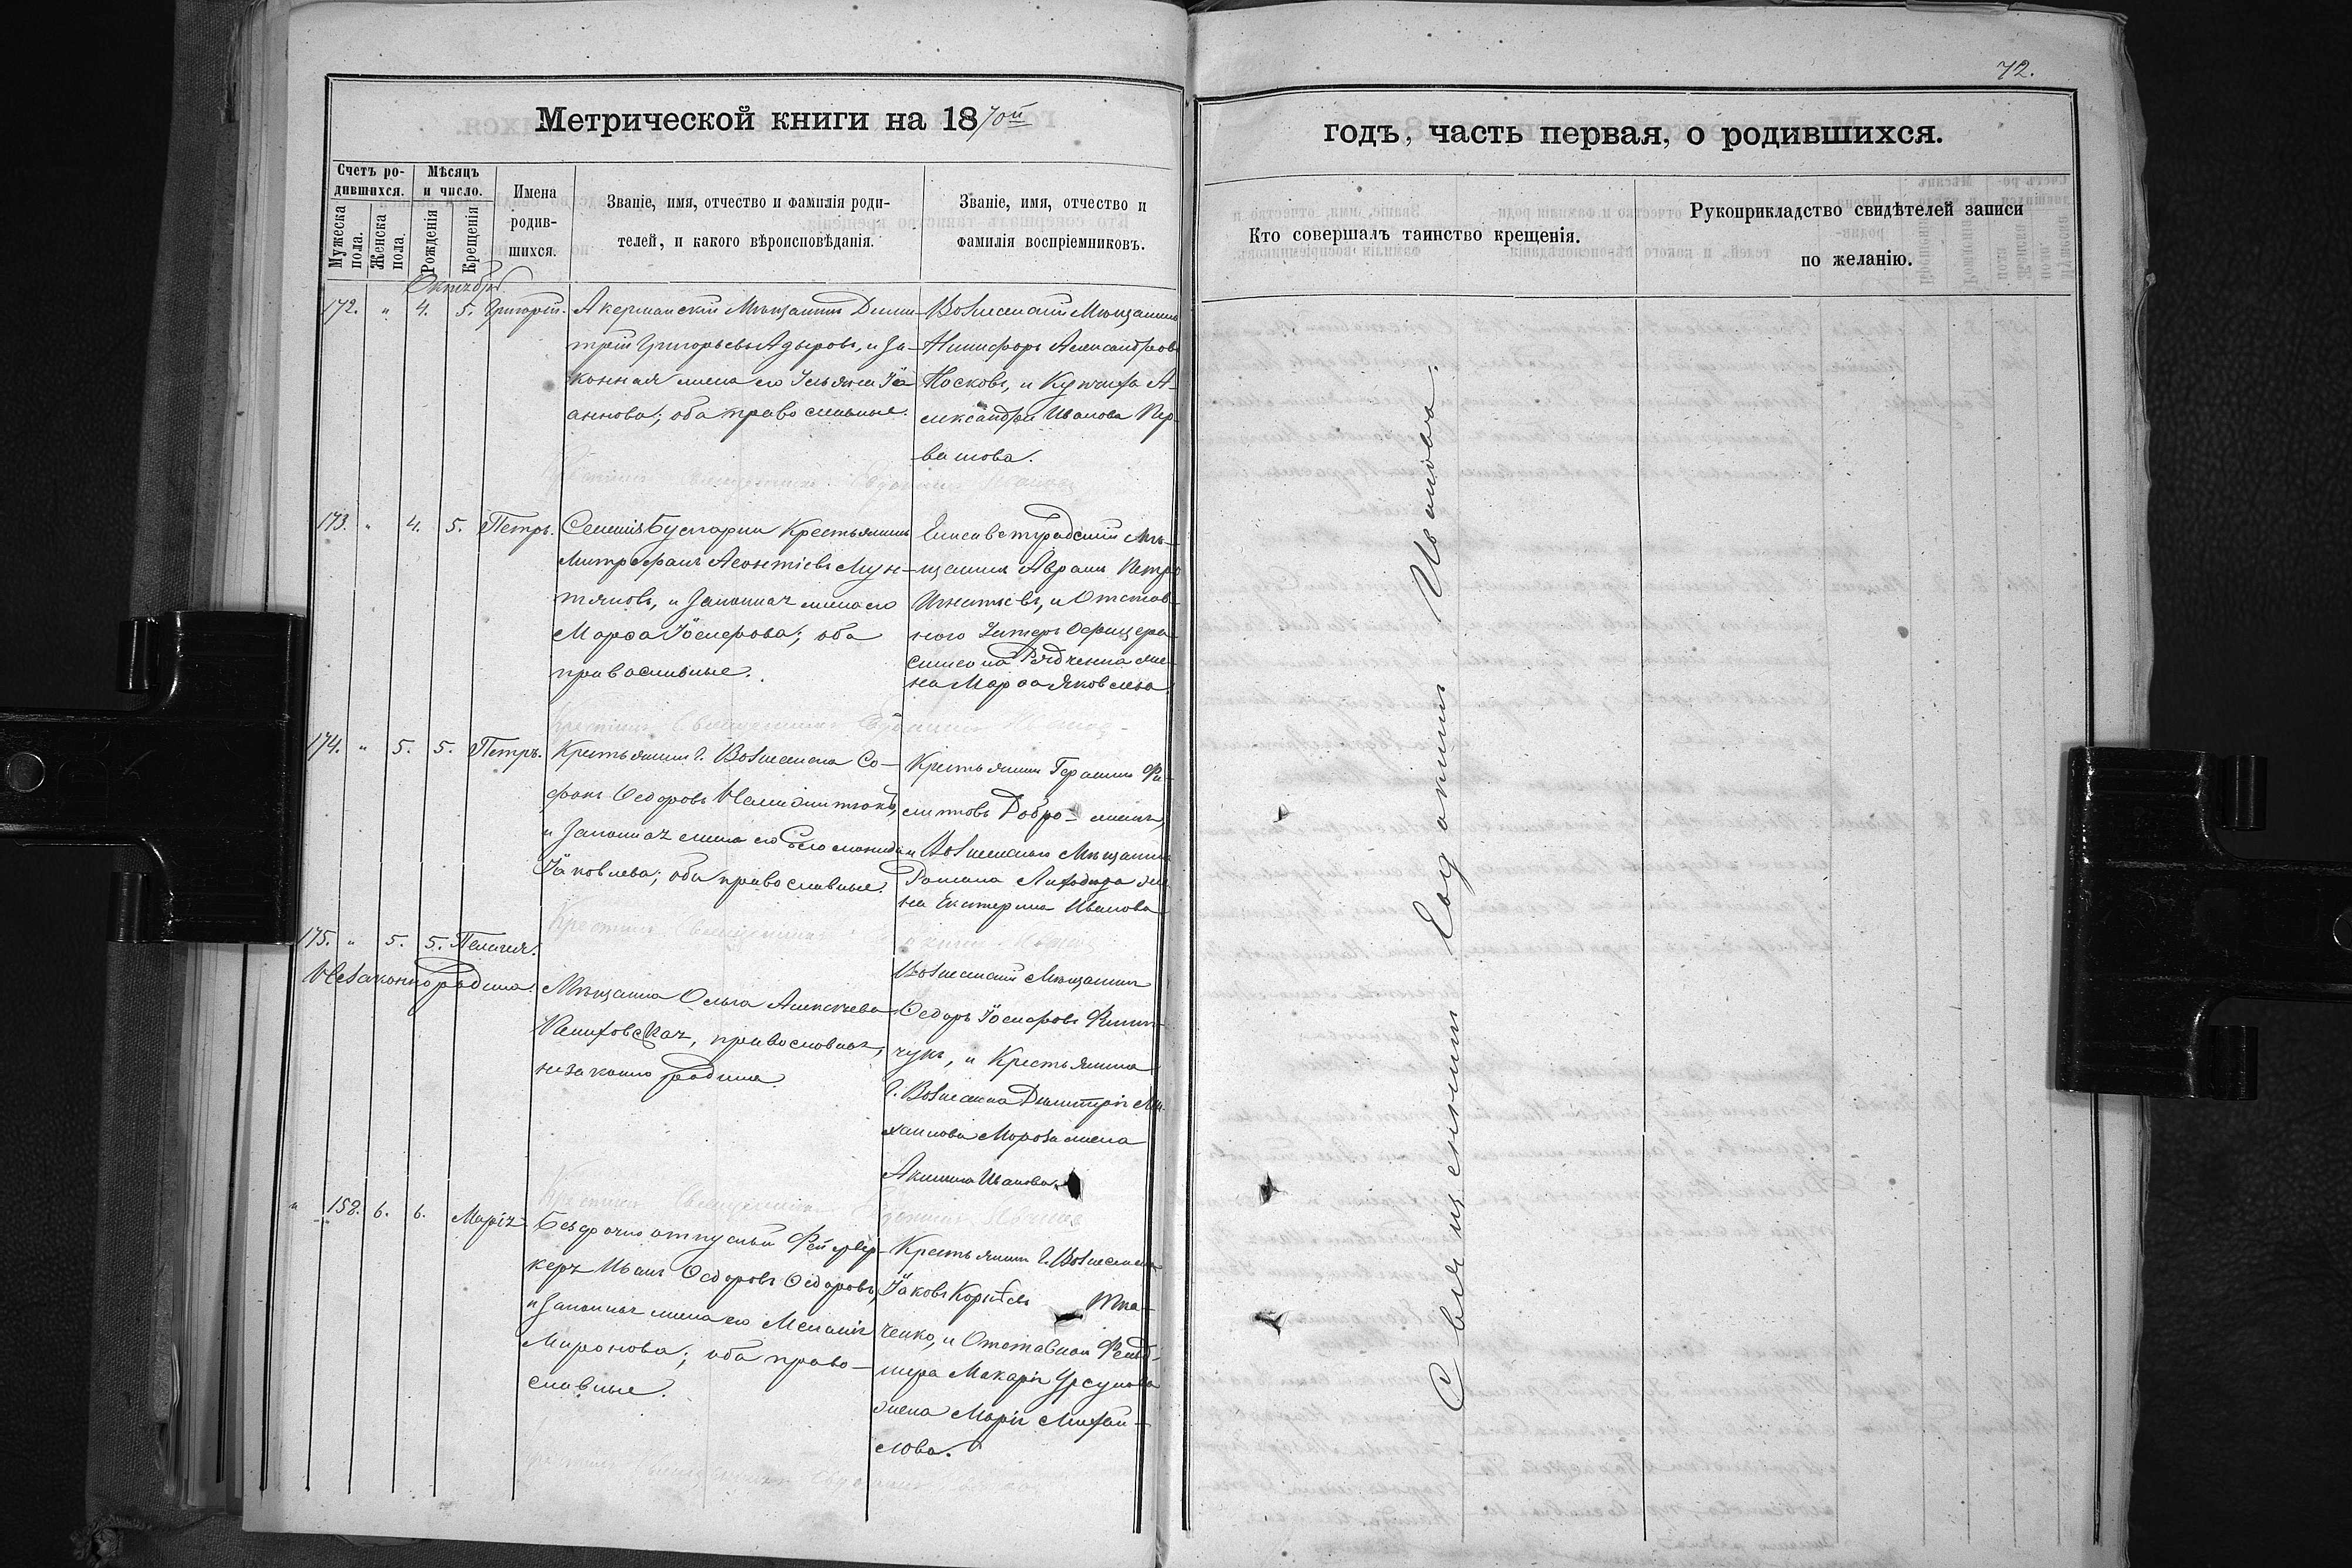 72.
Метрической книги на 1870й
годъ, часть первая, о родившихся.
Счетъ родившихся.
Мужеска пола.
Женска пола.
Мѣсяцъ и число.
Рожденія
Крещенія
Имена родив-
шихся.
Званіе, имя, отчество и фамилія роди-
телей, и какого вѣроисповѣданія.
Званіе, имя, отчество и
фамилія воспріемниковъ.
Кто совершалъ таинство крещенія.
Рукоприкладство свидѣтелей записи
по желанію.
Октябрь
172. " 4. 5. Григорій.
Акерманскій Мѣщанинъ Дими-
трій Григорьевъ Адыровъ, и за-
конная жена его Ульяна Іо-
аннова; оба православные.
Вознесенскій Мѣщанинъ
Никифоръ Александровъ
Носковъ, и Купчиха А-
лександра Иванова Пер-
173. " 4. 5. Петръ.
Крестьянинъ
Митрофанъ Леонтіевъ Мун-
тяновъ, и законная жена его
Марѳа Іосифова; оба
православные.
Елисаветградскій Мѣ-
щанинъ Аврамъ Петро
Игнатьевъ, и Отстав-
ного Унтеръ Офицера
Симеона Рядченка же-
на Марѳа Яковлева
174. " 5. 5. Петръ.
Крестьянинъ г. Вознесенска Со-
фонъ Ѳедоровъ
и законная жена его
Яковлева; оба православные.
Крестьянинъ Герасимъ Фи-
липповъ
и Вознесенскаго Мѣщанина
Романа Лиходида же-
на Екатерина Иванова
175. " 5. 5. Пелагея.
Незаконнорождена.
Мѣщанка Ольга Алексѣева
православная,
незаконно рождена.
Вознесенскій Мѣщанинъ
Ѳедоръ Іосифовъ
чукъ, и Крестьянина
г. Вознесенска Димитрія Ми-
хаилова Мороза жена
Акилина Иванова
" 158. 6. 6. Марія
Безсрочно отпускной Фейервер-
керъ Иванъ Ѳедоровъ Ѳедоровъ,
и законная жена его Меланія
Миронова; оба право-
славные.
Крестьянинъ г. Вознесенска
Яковъ Корнѣевъ Тка-
ченко, и Отставнаго Фельд-
шера Макарія Урсулова
жена Марія Михаи-
лова.
Священникъ Евдокимъ Иванова.